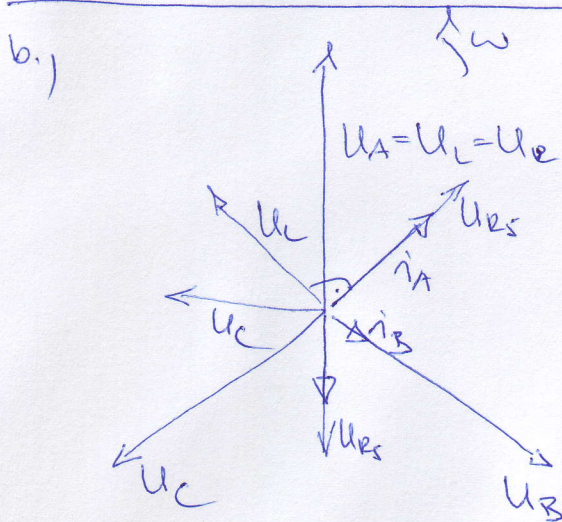 b.)
ω
U_A=U_L=U_R
U_L
U_R5
i_A
U_C
i_B
U_R5
U_C
U_B